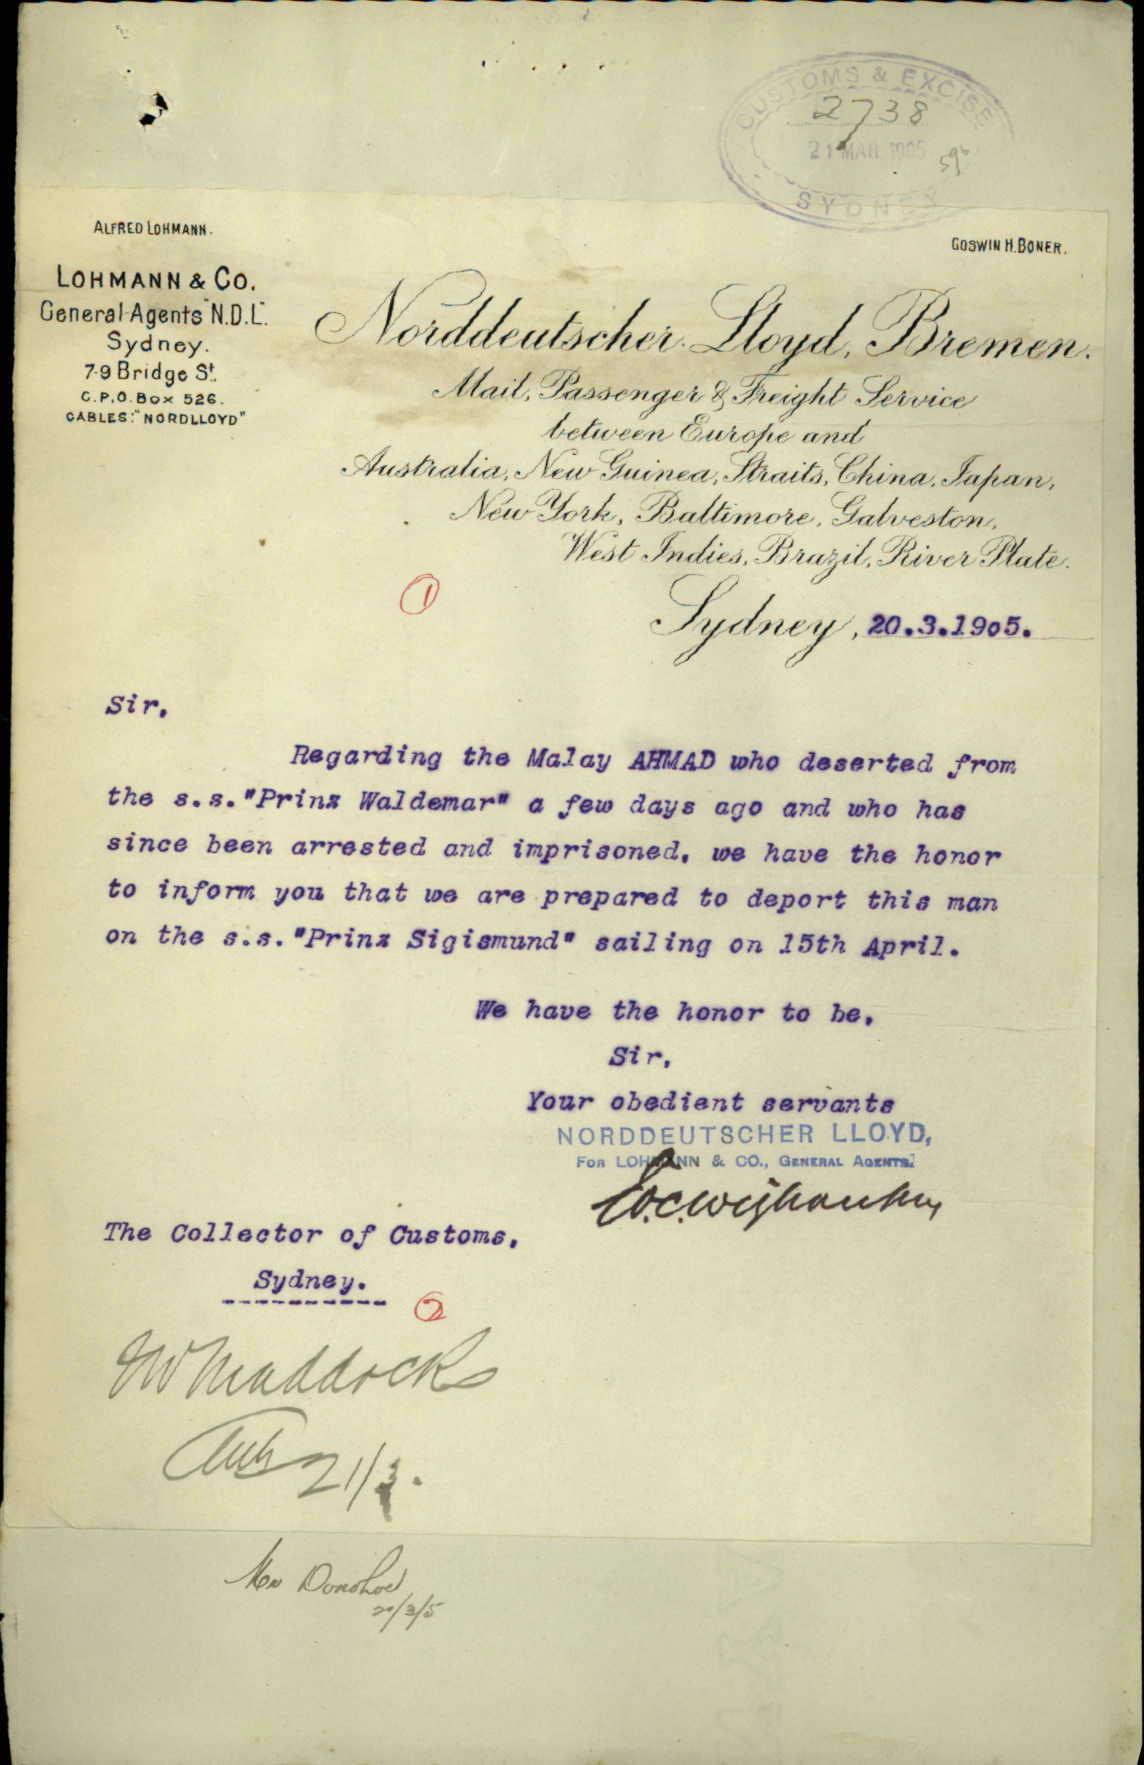 CUSTOMS & EXCISE
2738
21 MAR 1905
SYDNEY
ALFRED LOHMANN.
GOSWIN H. BONER.
LOHMANN & CO.
General Agents "N.D.L."
Sydney.
7-9 Bridge St.
G.P.O. Box 526.
CABLES: "NORDLLOYD"
Norddeutscher Lloyd, Bremen.
Mail, Passenger & Freight Service
between Europe and
Australia, New Guinea, Straits, China, Japan,
New York, Baltimore, Galveston,
West Indies, Brazil, River Plate.
1
Sydney, 20.3.1905.
Sir,
Regarding the Malay AHMAD who deserted from
the s.s."Prinz Waldemar" a few days ago and who has
since been arrested and imprisoned, we have the honor
to inform you that we are prepared to deport this man
on the s.s."Prinz Sigismund" sailing on 15th April.
We have the honor to be,
Sir,
Your obedient servants
NORDDEUTSCHER LLOYD,
FOR LOHMANN & CO., GENERAL AGENTS.
The Collector of Customs,
Sydney.
2
Maddocks
21/3.
Mr Donohoe
20/3/5